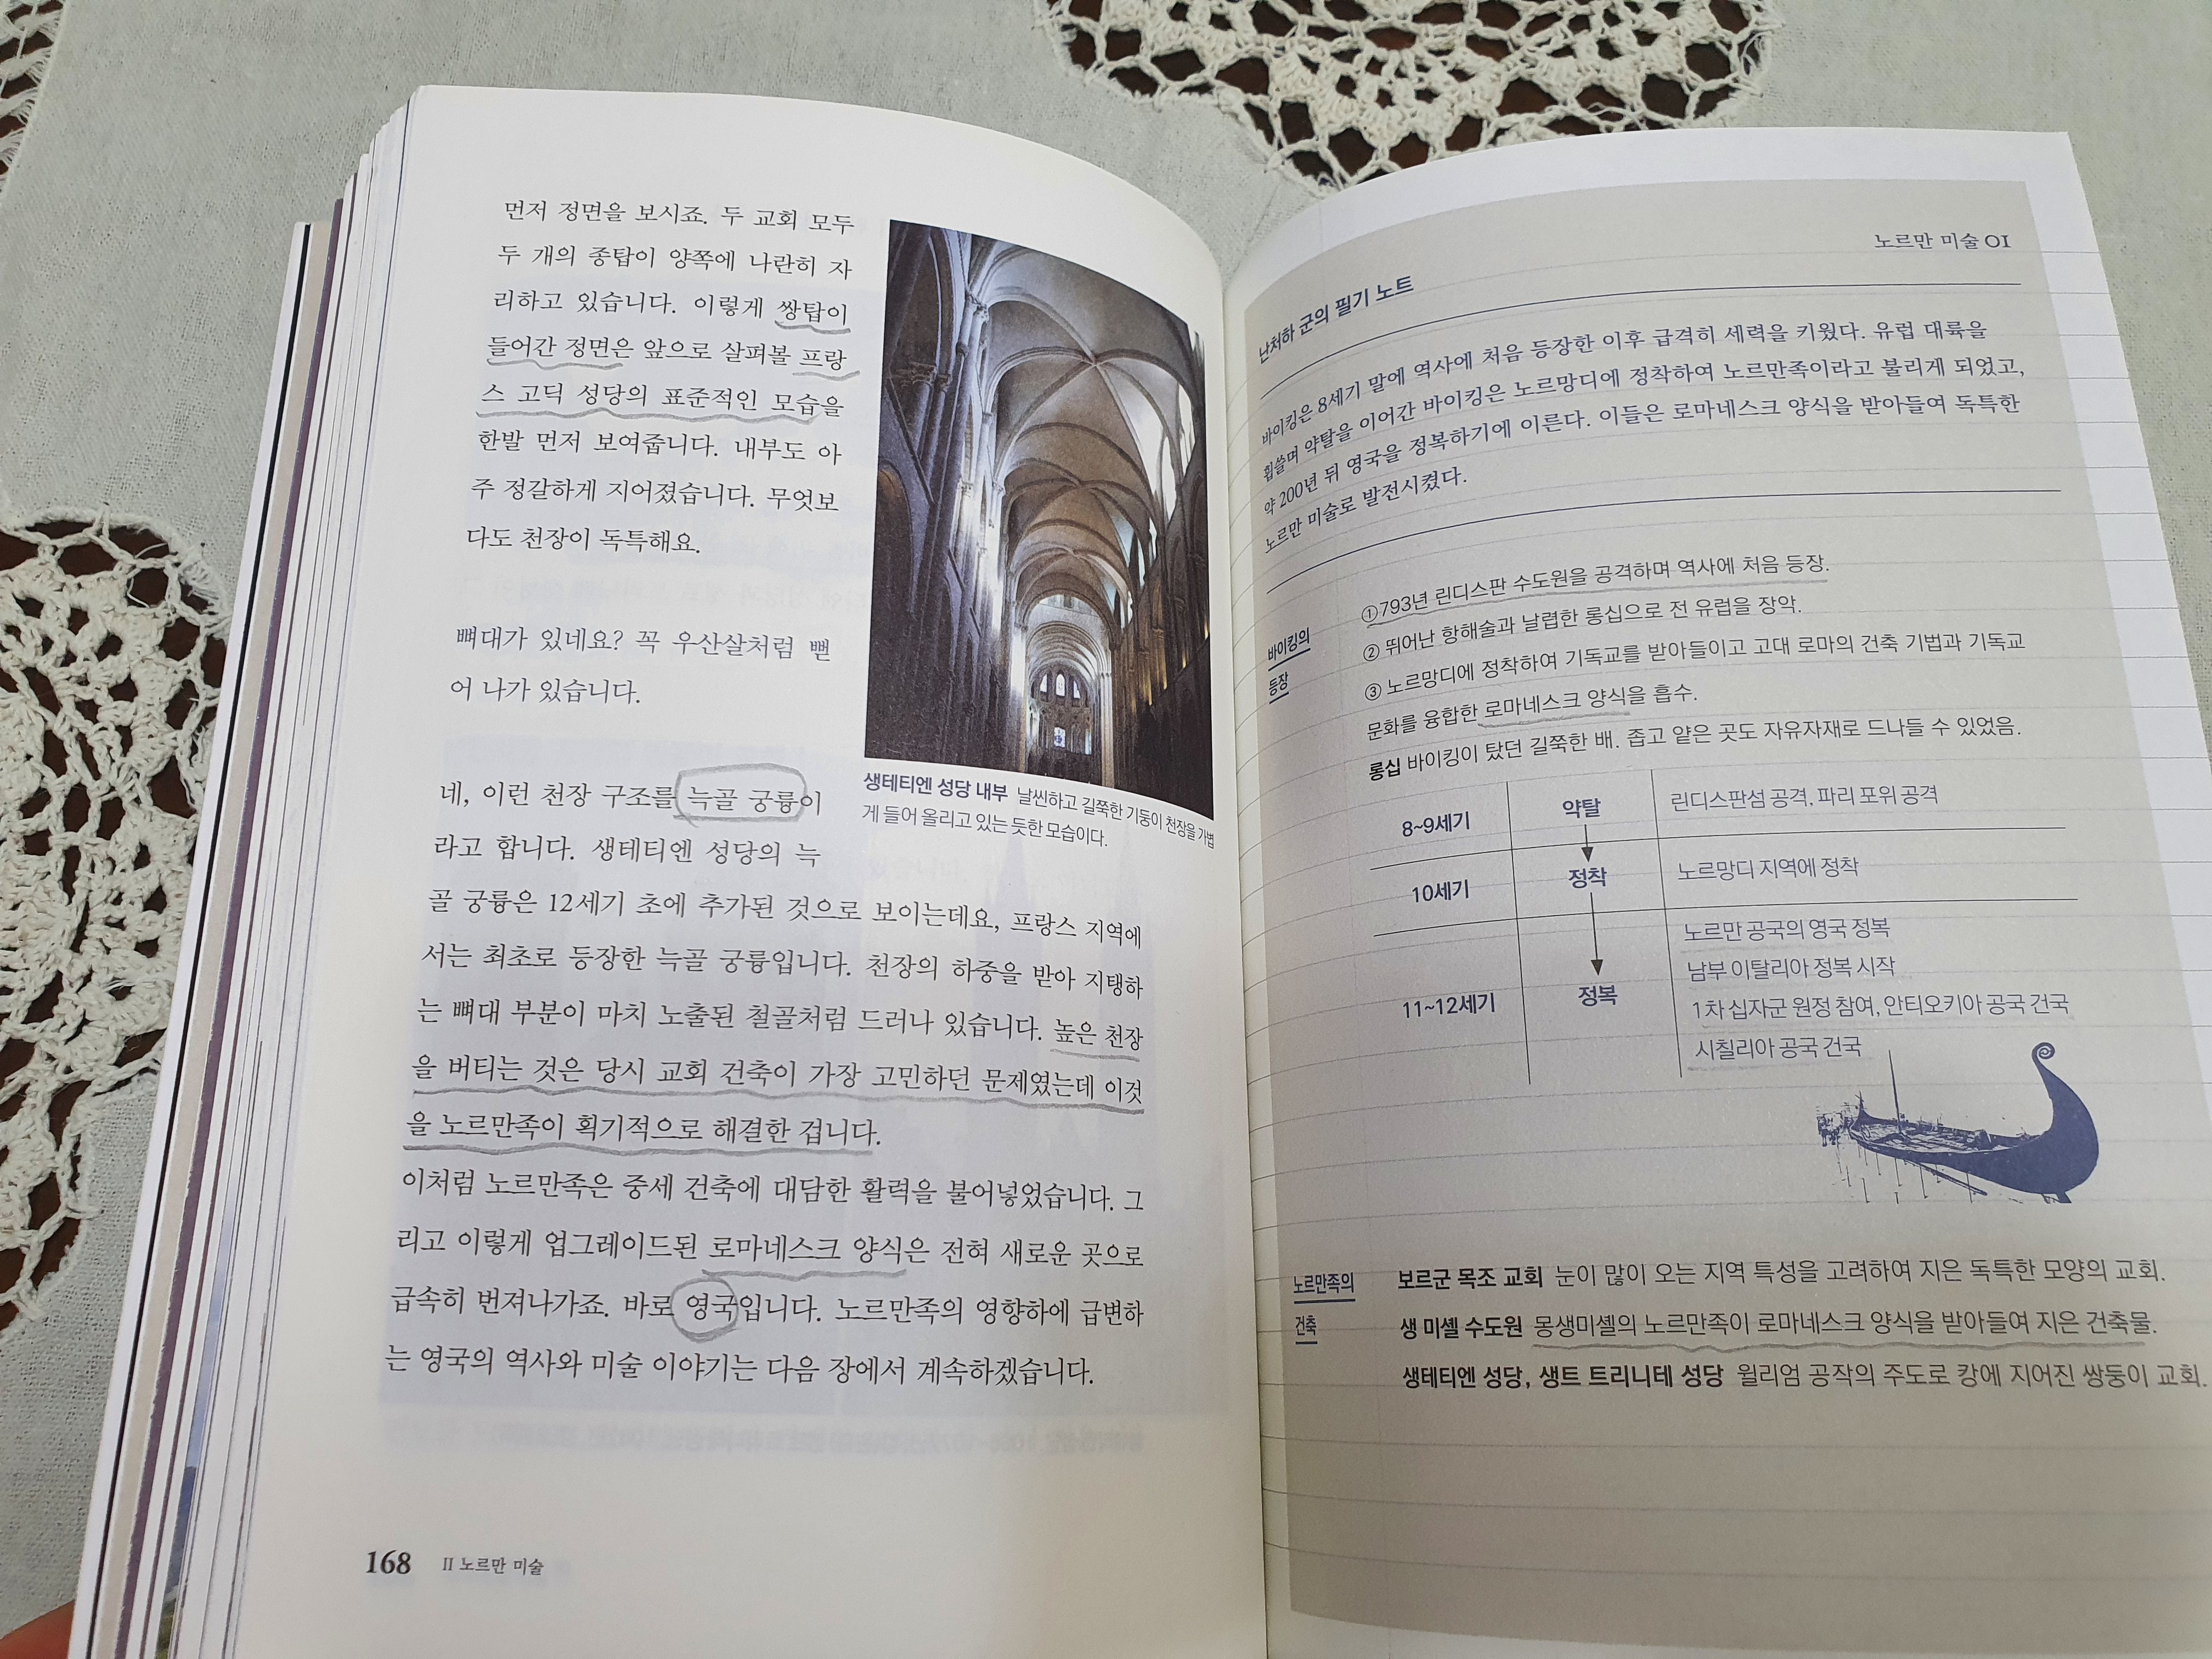 먼저 정면을 보시죠. 두 교회 모두
두 개의 종탑이 양쪽에 나란히 자
리하고 있습니다. 이렇게 쌍탑이
들어간 정면은 앞으로 살펴볼 프랑
스 고딕 성당의 표준적인 모습을
한발 먼저 보여줍니다. 내부도 아
주 정갈하게 지어졌습니다. 무엇보
다도 천장이 독특해요.
뼈대가 있네요? 꼭 우산살처럼 뻗
어 나가 있습니다.
생테티엔 성당 내부 날씬하고 길쭉한 기둥이 천장을 가볍
게 들어 올리고 있는 듯한 모습이다.
네, 이런 천장 구조를 늑골 궁륭이
라고 합니다. 생테티엔 성당의 늑
골 궁륭은 12세기 초에 추가된 것으로 보이는데요, 프랑스 지역에
서는 최초로 등장한 늑골 궁륭입니다. 천장의 하중을 받아 지탱하
는 뼈대 부분이 마치 노출된 철골처럼 드러나 있습니다. 높은 천장
을 버티는 것은 당시 교회 건축이 가장 고민하던 문제였는데 이것
을 노르만족이 획기적으로 해결한 겁니다.
이처럼 노르만족은 중세 건축에 대담한 활력을 불어넣었습니다. 그
리고 이렇게 업그레이드된 로마네스크 양식은 전혀 새로운 곳으로
급속히 번져나가죠. 바로 영국입니다. 노르만족의 영향하에 급변하
는 영국의 역사와 미술 이야기는 다음 장에서 계속하겠습니다.
168 II 노르만 미술
노르만 미술 01
난처하 군의 필기 노트
바이킹은 8세기 말에 역사에 처음 등장한 이후 급격히 세력을 키웠다. 유럽 대륙을
휩쓸며 약탈을 이어간 바이킹은 노르망디에 정착하여 노르만족이라고 불리게 되었고,
약 200년 뒤 영국을 정복하기에 이른다. 이들은 로마네스크 양식을 받아들여 독특한
노르만 미술로 발전시켰다.
바이킹의
등장
①793년 린디스판 수도원을 공격하며 역사에 처음 등장.
② 뛰어난 항해술과 날렵한 롱십으로 전 유럽을 장악.
③ 노르망디에 정착하여 기독교를 받아들이고 고대 로마의 건축 기법과 기독교
문화를 융합한 로마네스크 양식을 흡수.
롱십 바이킹이 탔던 길쭉한 배. 좁고 얕은 곳도 자유자재로 드나들 수 있었음.
8~9세기 약탈 린디스판섬 공격, 파리 포위 공격
10세기 정착 노르망디 지역에 정착
11~12세기 정복 노르만 공국의 영국 정복
남부 이탈리아 정복 시작
1차 십자군 원정 참여, 안티오키아 공국 건국
시칠리아 공국 건국
노르만족의
건축
보르군 목조 교회 눈이 많이 오는 지역 특성을 고려하여 지은 독특한 모양의 교회.
생 미셸 수도원 몽생미셸의 노르만족이 로마네스크 양식을 받아들여 지은 건축물.
생테티엔 성당, 생트 트리니테 성당 윌리엄 공작의 주도로 캉에 지어진 쌍둥이 교회.